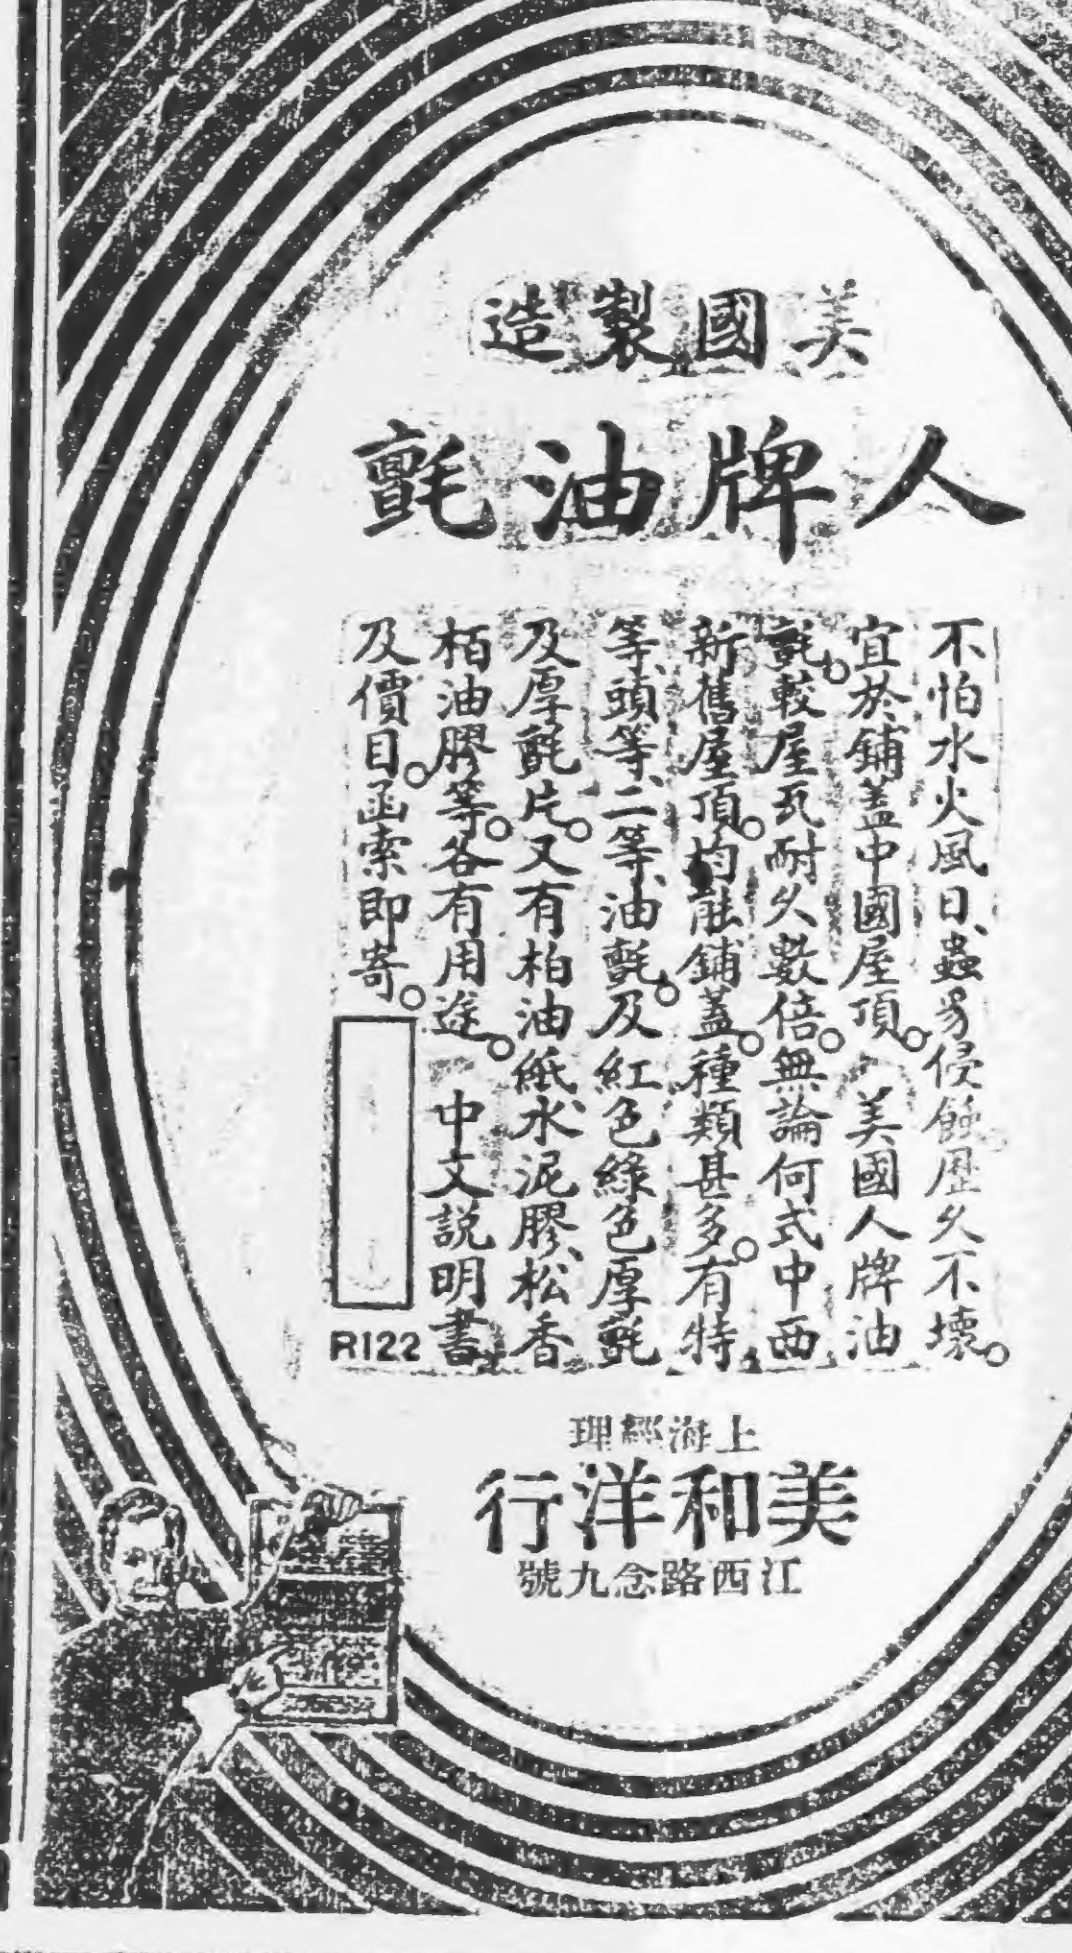 美國製造
人牌油氈
不怕水火風日、蟲豸侵蝕歷久不壞。
宜於鋪蓋中國屋頂。美國人牌油
氈。較屋瓦耐久數倍。無論何式中西
新舊屋頂。均能鋪蓋。種類甚多。有特
等、頭等、二等、油氈。及紅色綠色厚氈
及厚氈片。又有柏油紙、水泥膠、松香
栢油膠等。各有用途。中文説明書
及價目。函索即寄。
R122
上海經理
美和洋行
江西路念九號